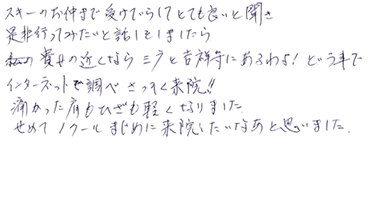 スキーのお仲間で受けていらしてとても良いと聞き
是非行ってみたいと話をしましたら
私の責せの近くなら 三鷹と吉祥寺にあるわよ！という事で
インターネットで調べ さっそく来院!!
痛かった肩もひざも軽くなりました
せめて1クールまじめに来院したいなあと思いました.